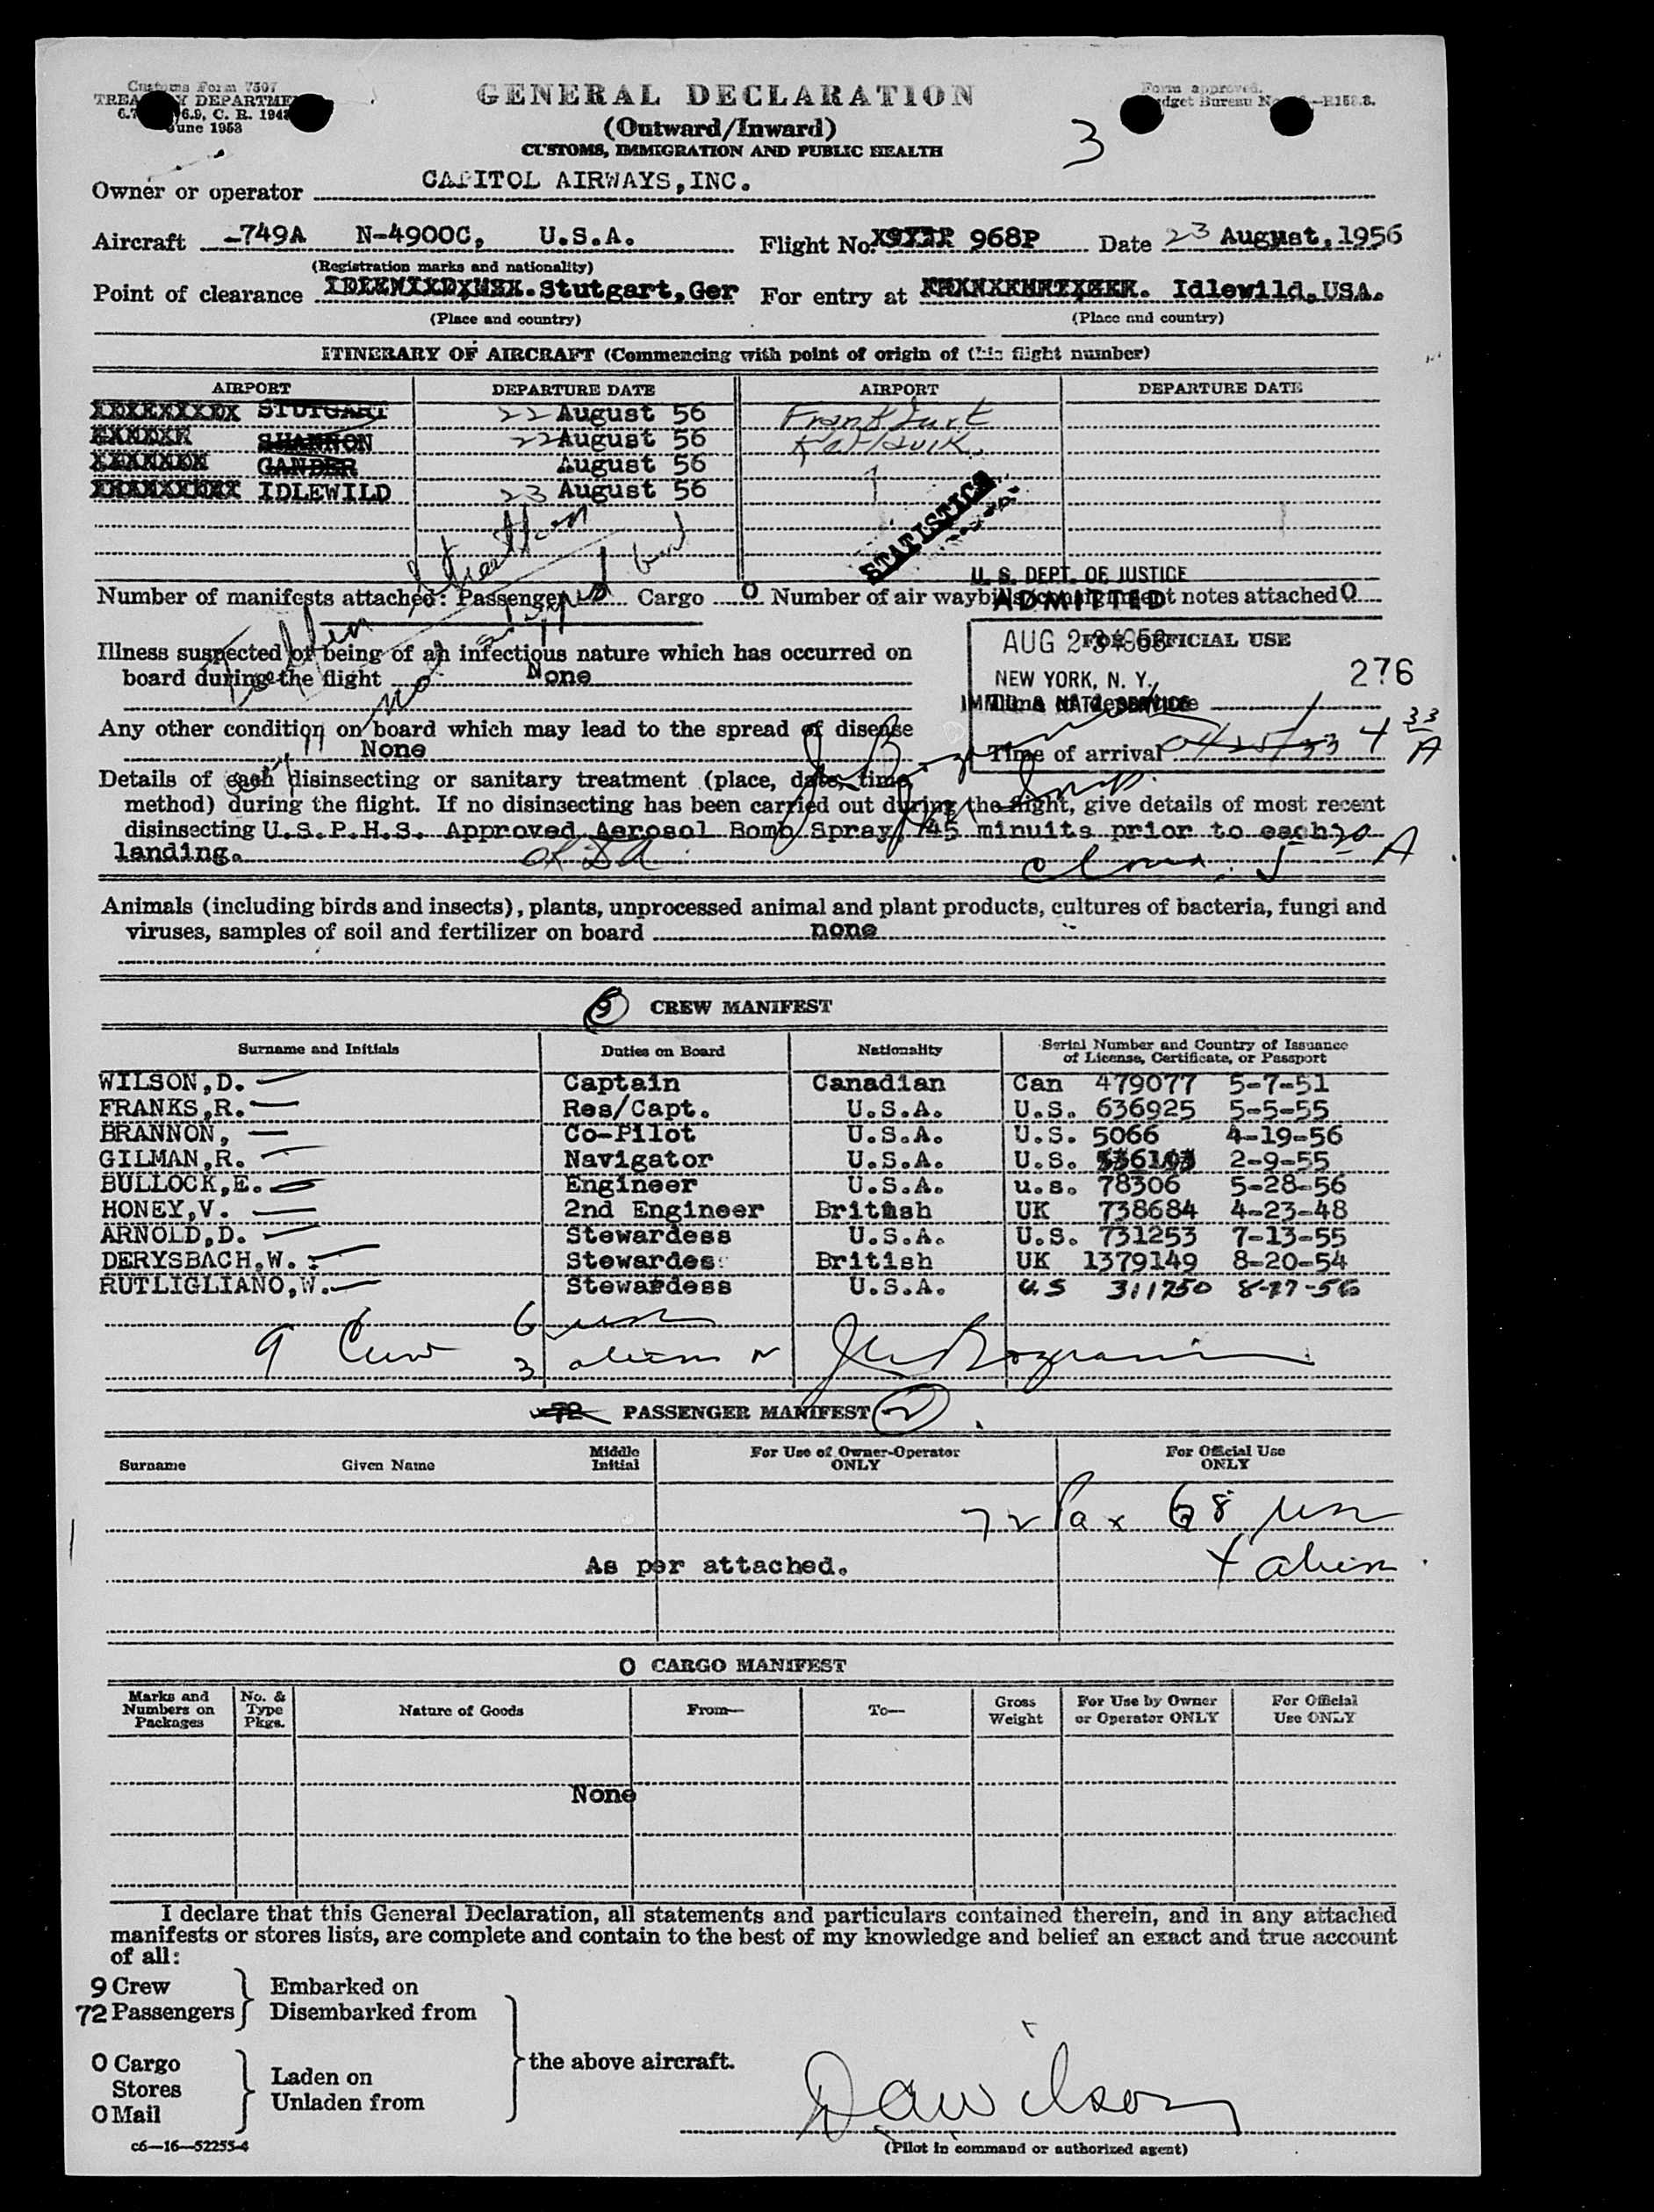 Customs Form 7507
TREASURY DEPARTMENT
June 1953
GENERAL DECLARATION
(Outward/Inward)
CUSTOMS, IMMIGRATION AND PUBLIC HEALTH
Form approved.
3
Owner or operator CAPITOL AIRWAYS, INC.
Aircraft -749A N-4900C, U.S.A. Flight No. 968P Date 23 August, 1956
(Registration marks and nationality)
Point of clearance Stutgart, Ger For entry at Idlewild, USA.
(Place and country) (Place and country)
ITINERARY OF AIRCRAFT (Commencing with point of origin of this flight number)
AIRPORT DEPARTURE DATE AIRPORT DEPARTURE DATE
STUTGART 22 August 56 Frankfurt
SHANNON 22 August 56 Keflavik
GANDER August 56
IDLEWILD 23 August 56
STATISTICS
U. S. DEPT. OF JUSTICE
ADMITTED
Number of manifests attached: Passenger Cargo 0 Number of air waybills/consignment notes attached 0
Illness suspected of being of an infectious nature which has occurred on
board during the flight None
AUG 23 1956
FOR OFFICIAL USE
NEW YORK, N. Y.
276
IMMIG. & NATZ. SERVICE
Time of departure
Any other condition on board which may lead to the spread of disease
None
Time of arrival 4 33 A
Details of each disinsecting or sanitary treatment (place, date, time,
method) during the flight. If no disinsecting has been carried out during the flight, give details of most recent
disinsecting U.S.P.H.S. Approved Aerosol Bomb Spray, 45 minuits prior to each
landing.
Animals (including birds and insects), plants, unprocessed animal and plant products, cultures of bacteria, fungi and
viruses, samples of soil and fertilizer on board none
9 CREW MANIFEST
Surname and Initials Duties on Board Nationality Serial Number and Country of Issuance of License, Certificate, or Passport
WILSON,D. Captain Canadian Can 479077 5-7-51
FRANKS,R. Res/Capt. U.S.A. U.S. 636925 5-5-55
BRANNON, Co-Pilot U.S.A. U.S. 5066 4-19-56
GILMAN,R. Navigator U.S.A. U.S. 2-9-55
BULLOCK,E. Engineer U.S.A. u.s. 78306 5-28-56
HONEY,V. 2nd Engineer British UK 738684 4-23-48
ARNOLD,D. Stewardess U.S.A. U.S. 731253 7-13-55
DERYSBACH,W. Stewardes British UK 1379149 8-20-54
RUTLIGLIANO,W. Stewardess U.S.A. U.S 311750 8-17-56
9 Crew 6 usc
3 aliens
72 PASSENGER MANIFEST 2
Surname Given Name Middle Initial For Use of Owner-Operator ONLY For Official Use ONLY
72 Pax 68 usc
As per attached. 4 alien
0 CARGO MANIFEST
Marks and Numbers on Packages No. & Type Pkgs. Nature of Goods From— To— Gross Weight For Use by Owner or Operator ONLY For Official Use ONLY
None
I declare that this General Declaration, all statements and particulars contained therein, and in any attached
manifests or stores lists, are complete and contain to the best of my knowledge and belief an exact and true account
of all:
9 Crew Embarked on
72 Passengers Disembarked from
the above aircraft.
0 Cargo
Laden on
Stores
Unladen from
0 Mail
DaWilson
c6—16—52255-4
(Pilot in command or authorized agent)